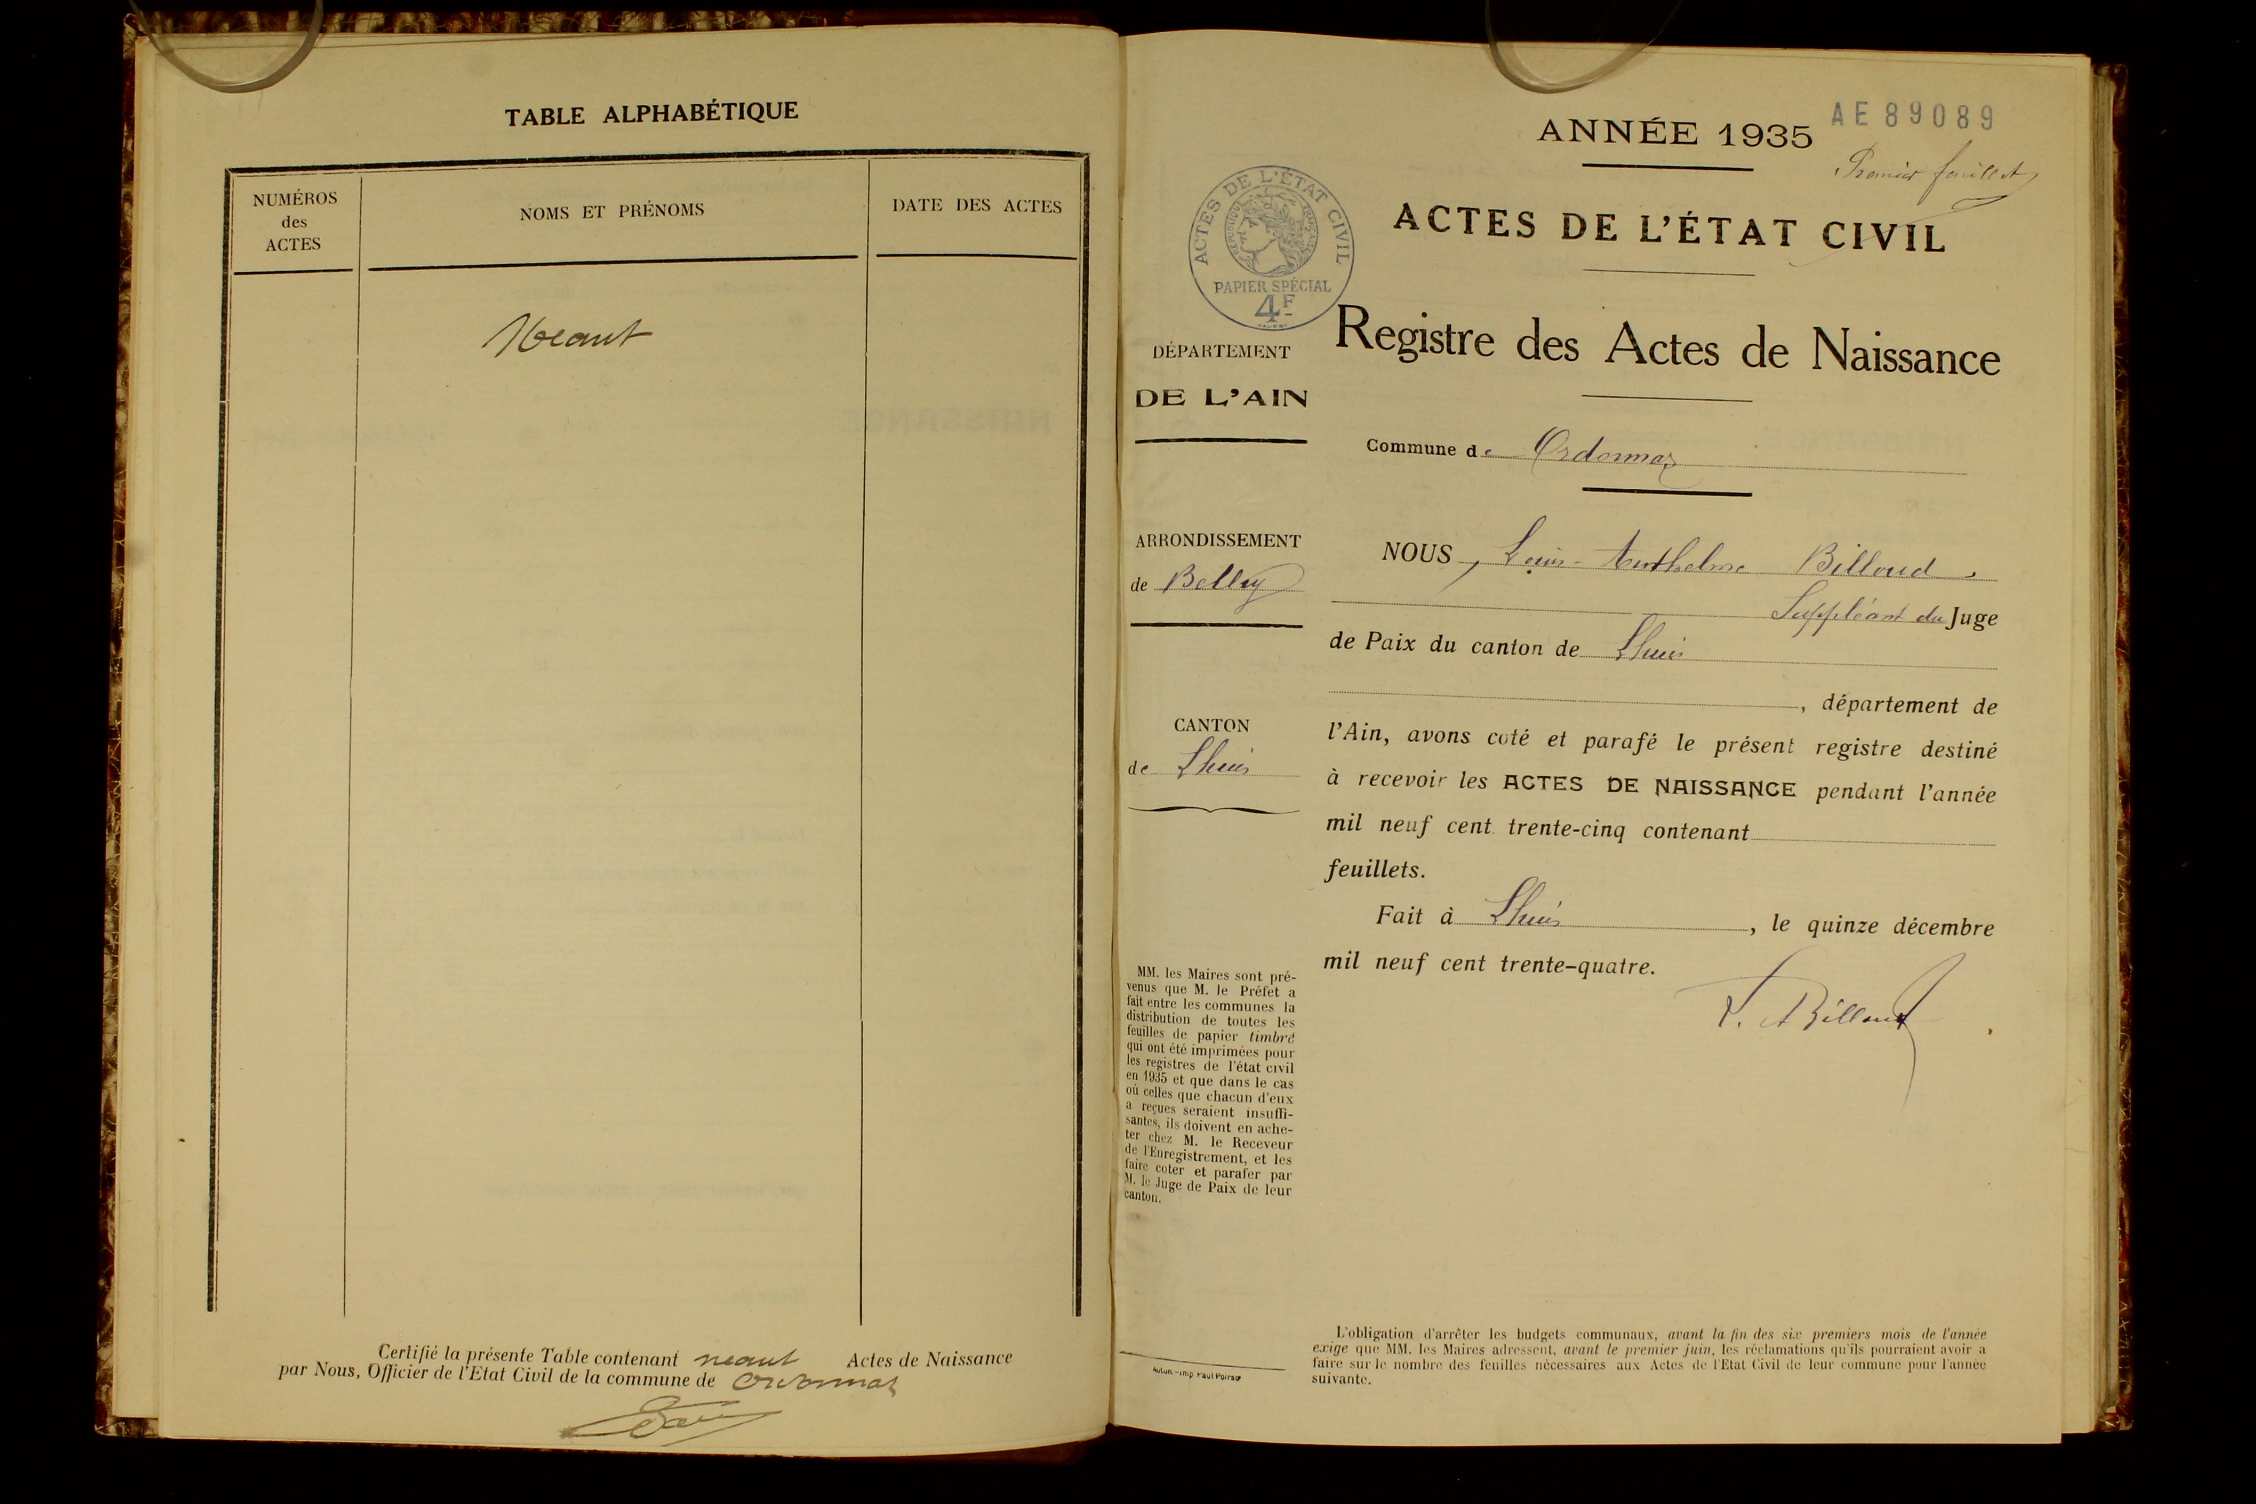 TABLE ALPHABÉTIQUE
NUMÉROS
des
ACTES
NOMS ET PRÉNOMS
DATE DES ACTES
Neant
Certifié la présente Table contenant neant Actes de Naissance
par Nous, Officier de l'Etat Civil de la commune de Ordonnaz
AE 89089
ANNÉE 1935
Premier feuillet
ACTES DE L'ÉTAT CIVIL
ACTES DE L'ÉTAT CIVIL
RÉPUBLIQUE FRANÇAISE
PAPIER SPÉCIAL
4F
Registre des Actes de Naissance
DÉPARTEMENT
DE L'AIN
Commune de Ordonnaz
ARRONDISSEMENT
de Belley
CANTON
de Lhuis
NOUS, Louis-Anthelme Billoud,
Suppléant du Juge
de Paix du canton de Lhuis
, département de
l'Ain, avons coté et parafé le présent registre destiné
à recevoir les ACTES DE NAISSANCE pendant l'année
mil neuf cent trente-cinq contenant
feuillets.
Fait à Lhuis, le quinze décembre
mil neuf cent trente-quatre.
L. A Billoud
MM. les Maires sont pré-
venus que M. le Préfet a
fait entre les communes la
distribution de toutes les
feuilles de papier timbré
qui ont été imprimées pour
les registres de l'état civil
en 1935 et que dans le cas
où celles que chacun d'eux
a reçues seraient insuffi-
santes, ils doivent en ache-
ter chez M. le Receveur
de l'Enregistrement, et les
faire coter et parafer par
M. le Juge de Paix de leur
canton.
L'obligation d'arrêter les budgets communaux, avant la fin des six premiers mois de l'année
exige que MM. les Maires adressent, avant le premier juin, les réclamations qu'ils pourraient avoir a
faire sur le nombre des feuilles nécessaires aux Actes de l'Etat Civil de leur commune pour l'année
suivante.